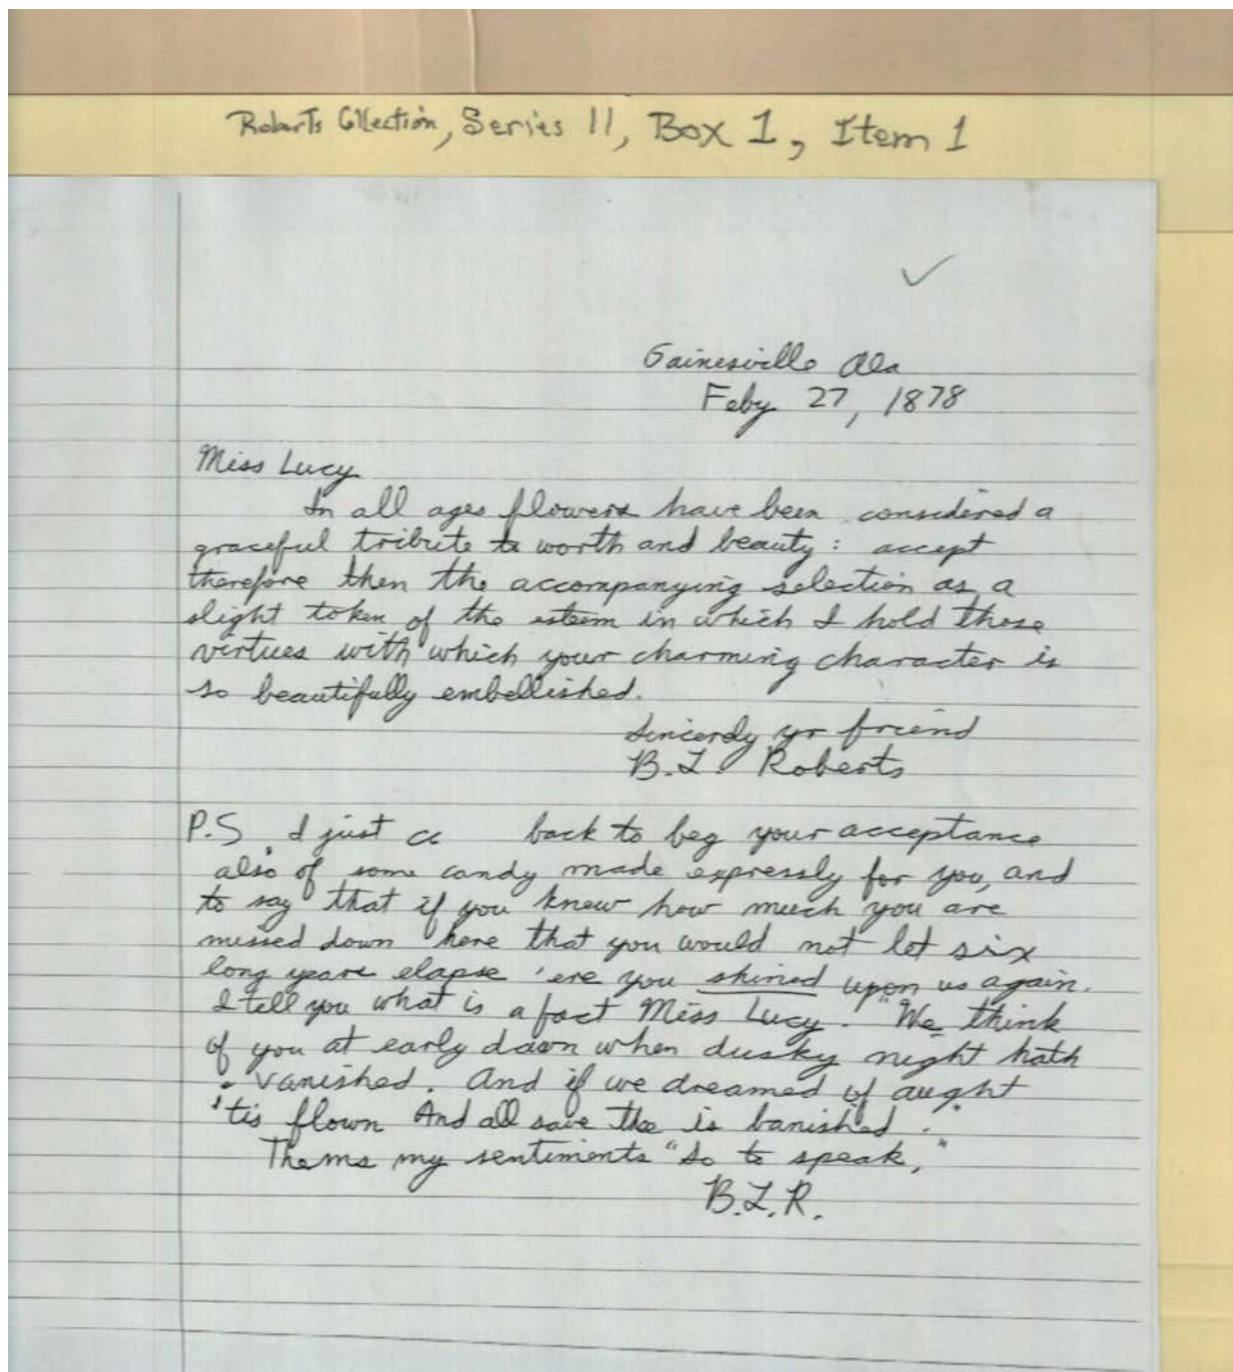 Roberts Cllection, Series II, Box 1, Item 1
Gainesville Ala
Feby 27, 1878
Miss Lucy
In all ages flowers have been considered a
graceful tribute to worth and beauty: accept
therefore then the accompanying selection as a
slight token of the esteem in which I hold those
virtues with which your charming character is
so beautifully embellished.
Sincerely yr friend
B.L. Roberts
P.S. I just back to beg your acceptance
also of some candy made expressly for you, and
to say that if you knew how much you are
missed down here that you would not let six
long years elapse 'ere you shined upon us again.
I tell you what is a fact Miss Lucy. "We think
of you at early dawn when dusky night hath
vanished. And if we dreamed of aught
'tis flown And all save thee is banished.
Thems my sentiments "so to speak,"
B.L.R.